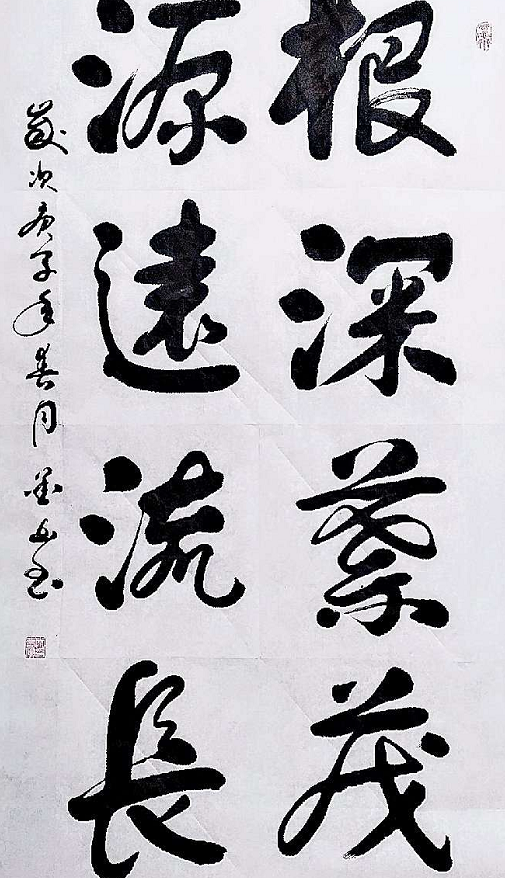 根深葉茂
源遠流長
歲次庚子年春月